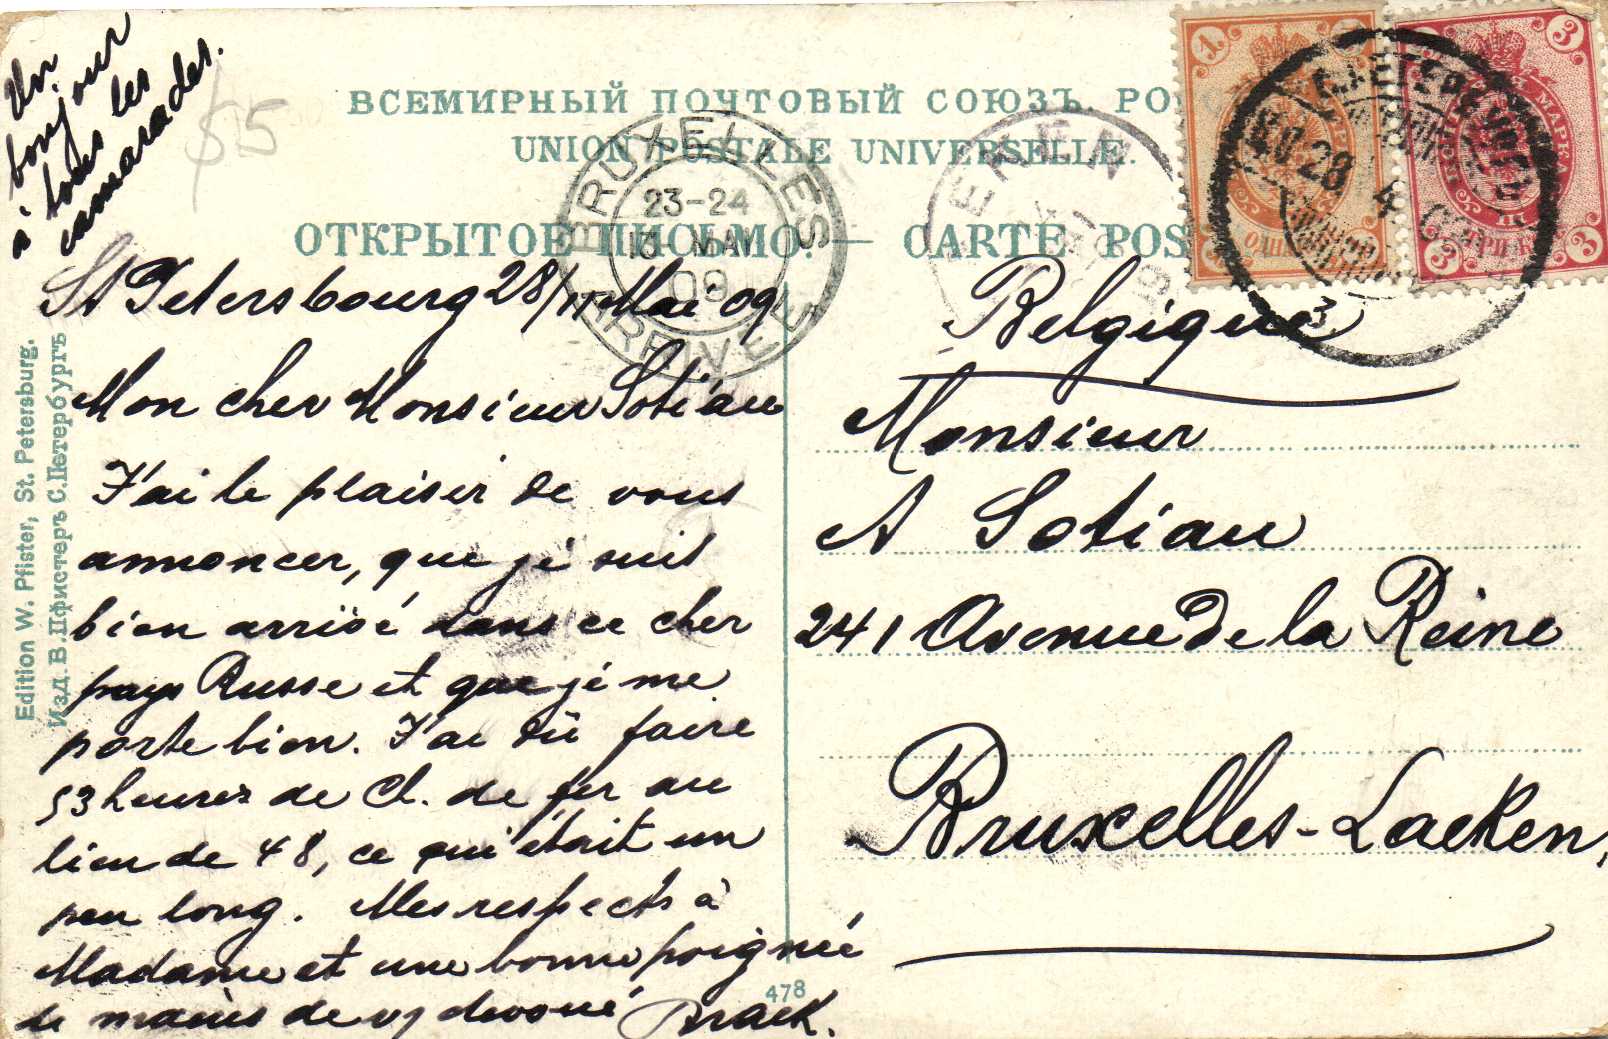 Un
bonjour
à tous les
camarades.
$5
ВСЕМИРНЫЙ ПОЧТОВЫЙ СОЮЗЪ. РО
UNION POSTALE UNIVERSELLE.
ОТКРЫТОЕ ПИСЬМО. — CARTE POS
BRUXELLES
23-24
13 MAI
09
ARRIVEE
28 4
3
1
3
МАРКА
3
3
St Petersbourg 28/ Mai 09
Mon cher Monsieur Sotiau
J'ai le plaisir de vous
annoncer, que je suis
bien arrivé dans ce cher
pays Russe et que je me
porte bien. J'ai dû faire
53 heures de Ch. de fer au
lieu de 48, ce qui était un
peu long. Mes respects à
Madame et une bonne poignée
de mains de v/ devoué Brack.
Belgique
Monsieur
A Sotiau
241 Avenue de la Reine
Bruxelles-Laeken,
Edition W. Pfister, St. Petersburg.
Изд. В. Пфистеръ С.Петербургъ
478